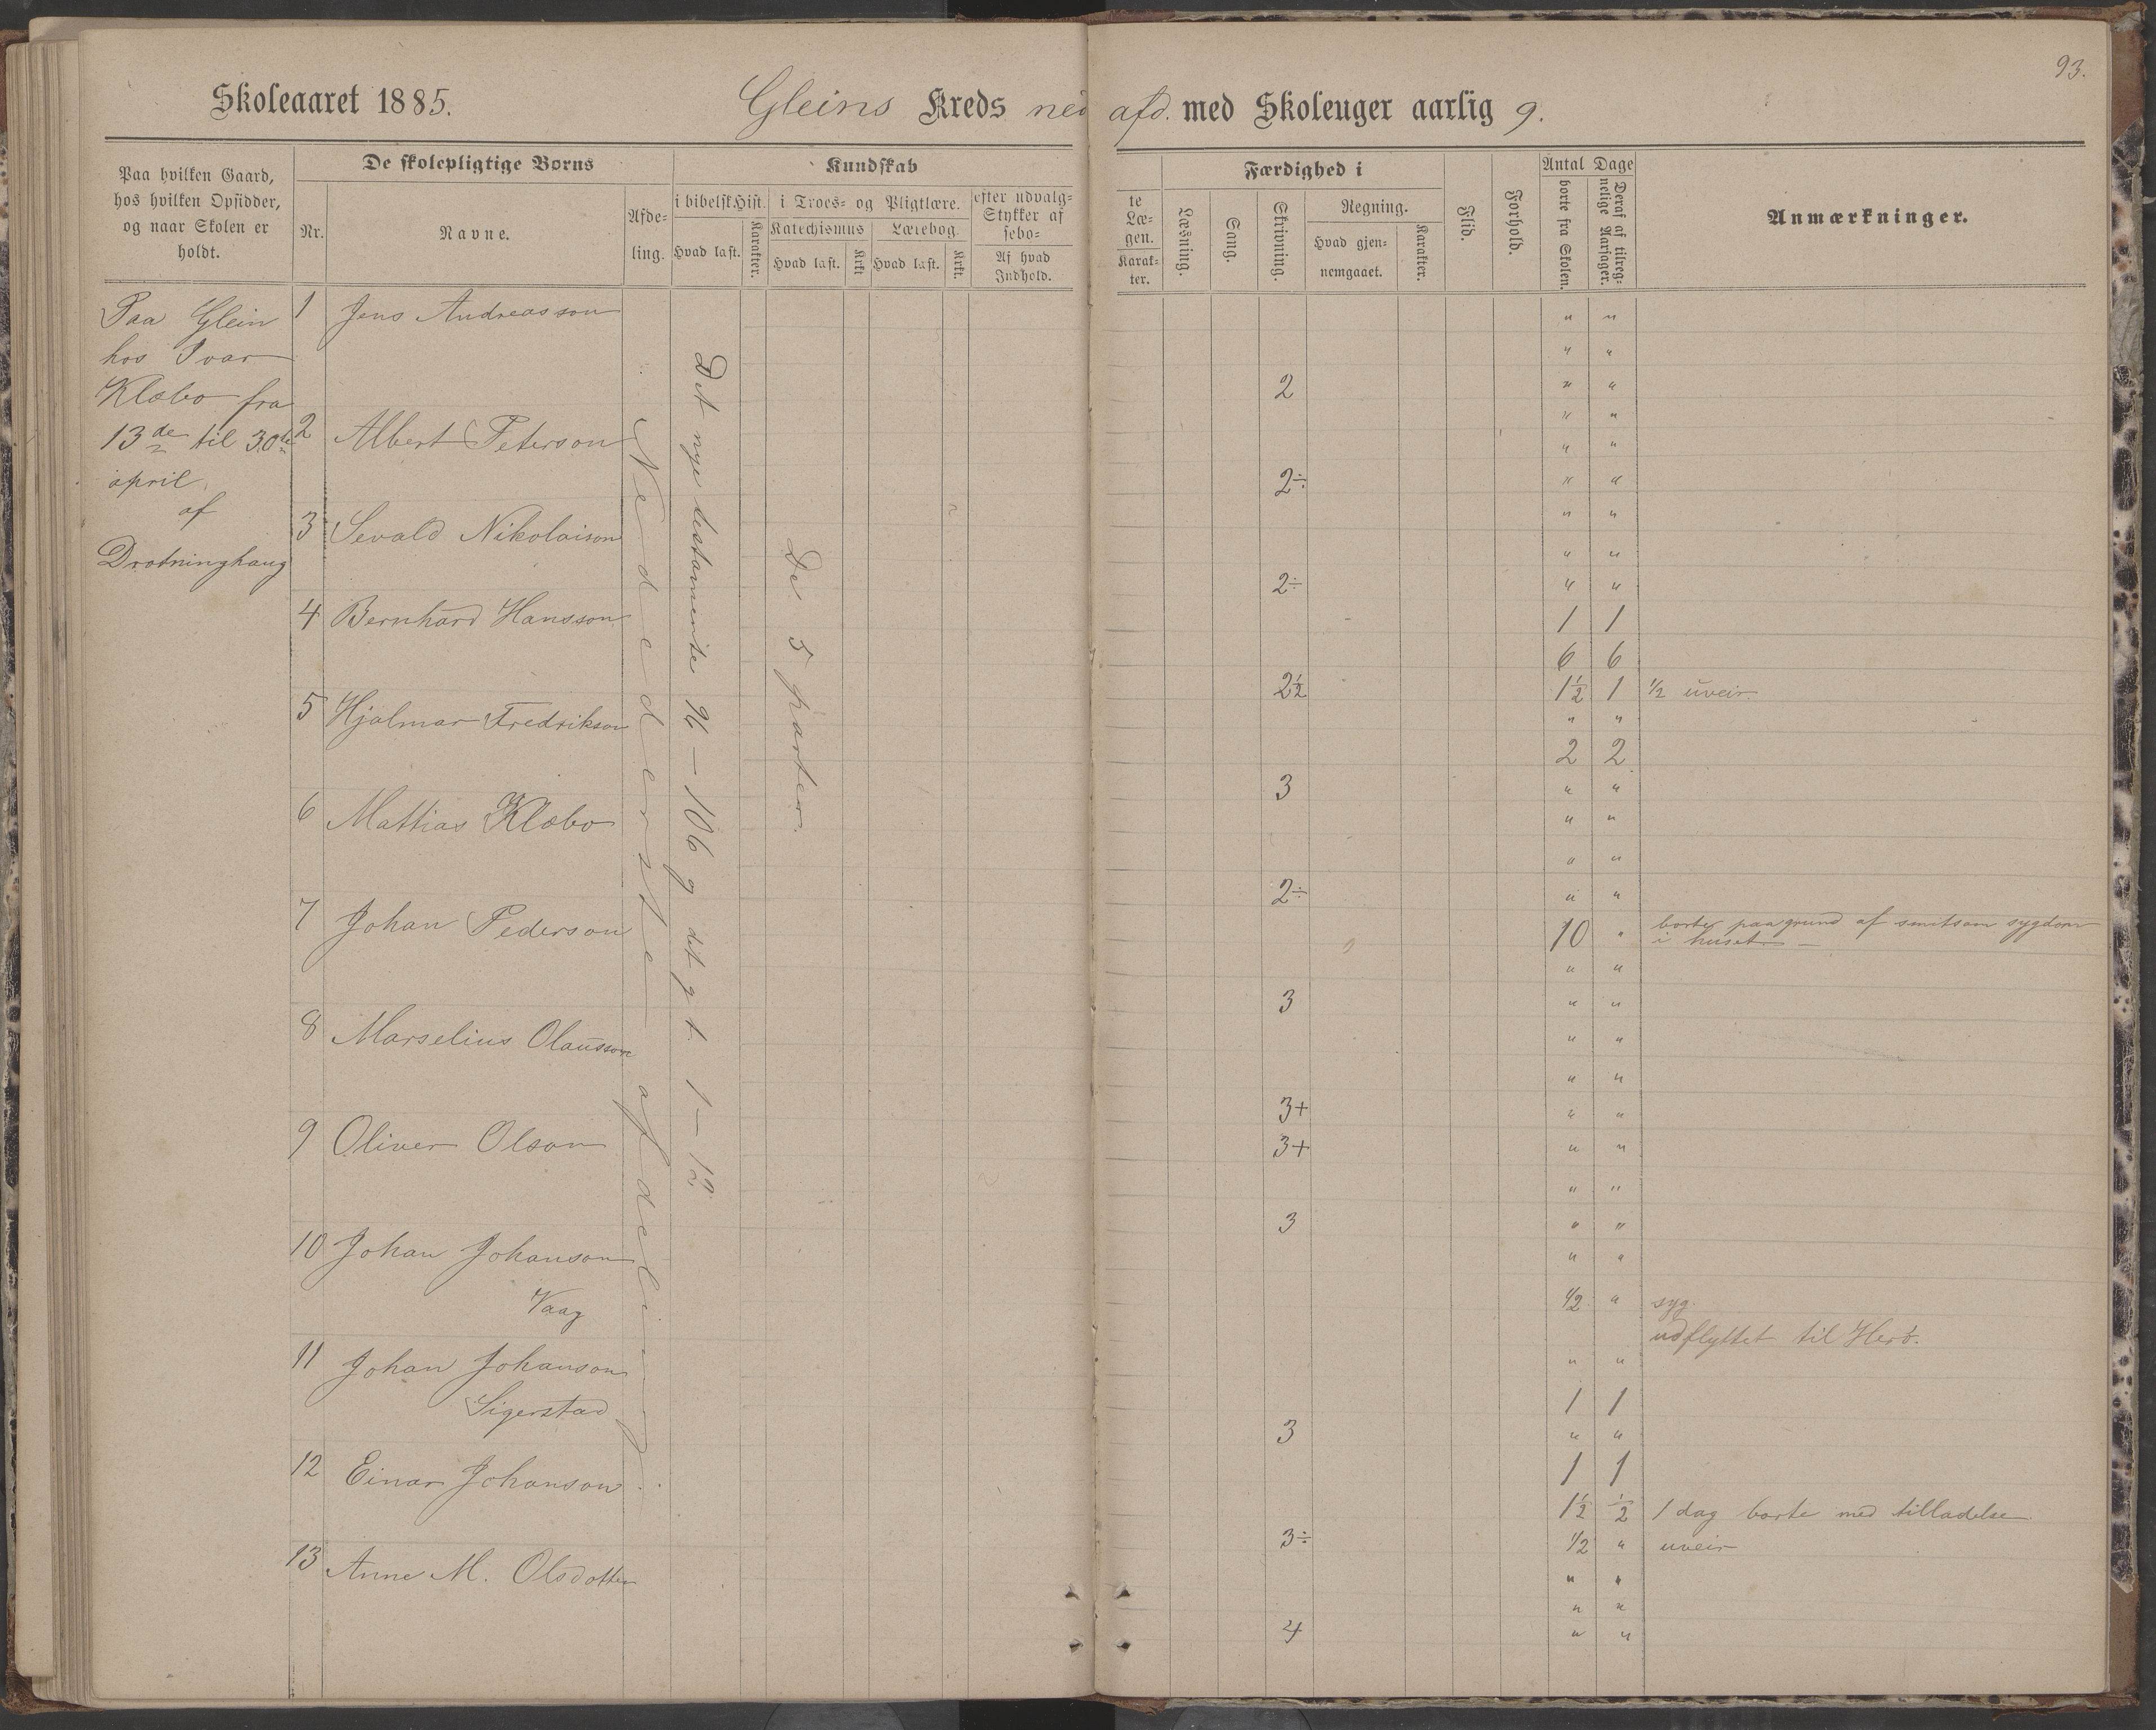 93.
Skoleaaret 1885. Gleins Kreds ned afd. med Skoleuger aarlig 9.
Paa hvilken Gaard, hos hvilken Opsidder, og naar Skolen er holdt.
De skolepligtige Børns
Nr.
Navne.
Afde-
ling.
Kundskab
i bibelsk Hist.
Hvad læst.
Karakter.
i Troes- og Pligtlære.
Katechismus
Hvad læst.
Krkt
Lærebog.
Hvad læst.
Krkt.
efter udvalg-
Stykker af
sebo-
Af hvad
Indhold.
te
Læ-
gen.
Karak-
ter.
Færdighed i
Læsning.
Sang.
Skrivning.
Regning.
Hvad gjen-
nemgaaet.
Karakter.
Flid.
Forhold.
Antal Dage
borte fra Skolen.
Deraf af tilreg-
nelige Aarsager.
Anmærkninger.
Paa Glein
hos Ivar
Klæbo fra
13de til 30te
april.
af
Drotninghaug
1 Jens Andreasson
2 Albert Peterson
3 Sevald Nikolaison
4 Bernhard Hansson
5 Hjalmar Fredrikson
6 Mattias Klæbo
7 Johan Pederson
8 Marselius Olausson
9 Oliver Olson
10 Johan Johanson
Vaag
11 Johan Johanson
Sigerstad
12 Einar Johanson
13 Anne M. Olsdotter
Nedederste afdeling.
Det nye testamente 96 – 106 og det g. t. 1 – 12
De 5 parter.
" "
" "
2 " "
" "
" "
2÷ " "
" "
" "
2÷ " "
1 1
6 6
2½ 1½ 1 ½ uveir.
" "
2 2
3 " "
" "
" "
2÷ " "
10 " borte paa grund af smitsom sygdom
i huset –
" "
3 " "
" "
" "
3+ " "
3+ " "
" "
3 " "
" "
½ " syg.
udflyttet til Herö.
" "
1 1
3 " "
1 1
1½ ½ 1 dag borte med tilladelse.
3÷ ½ " uveir
" "
" "
4 " "